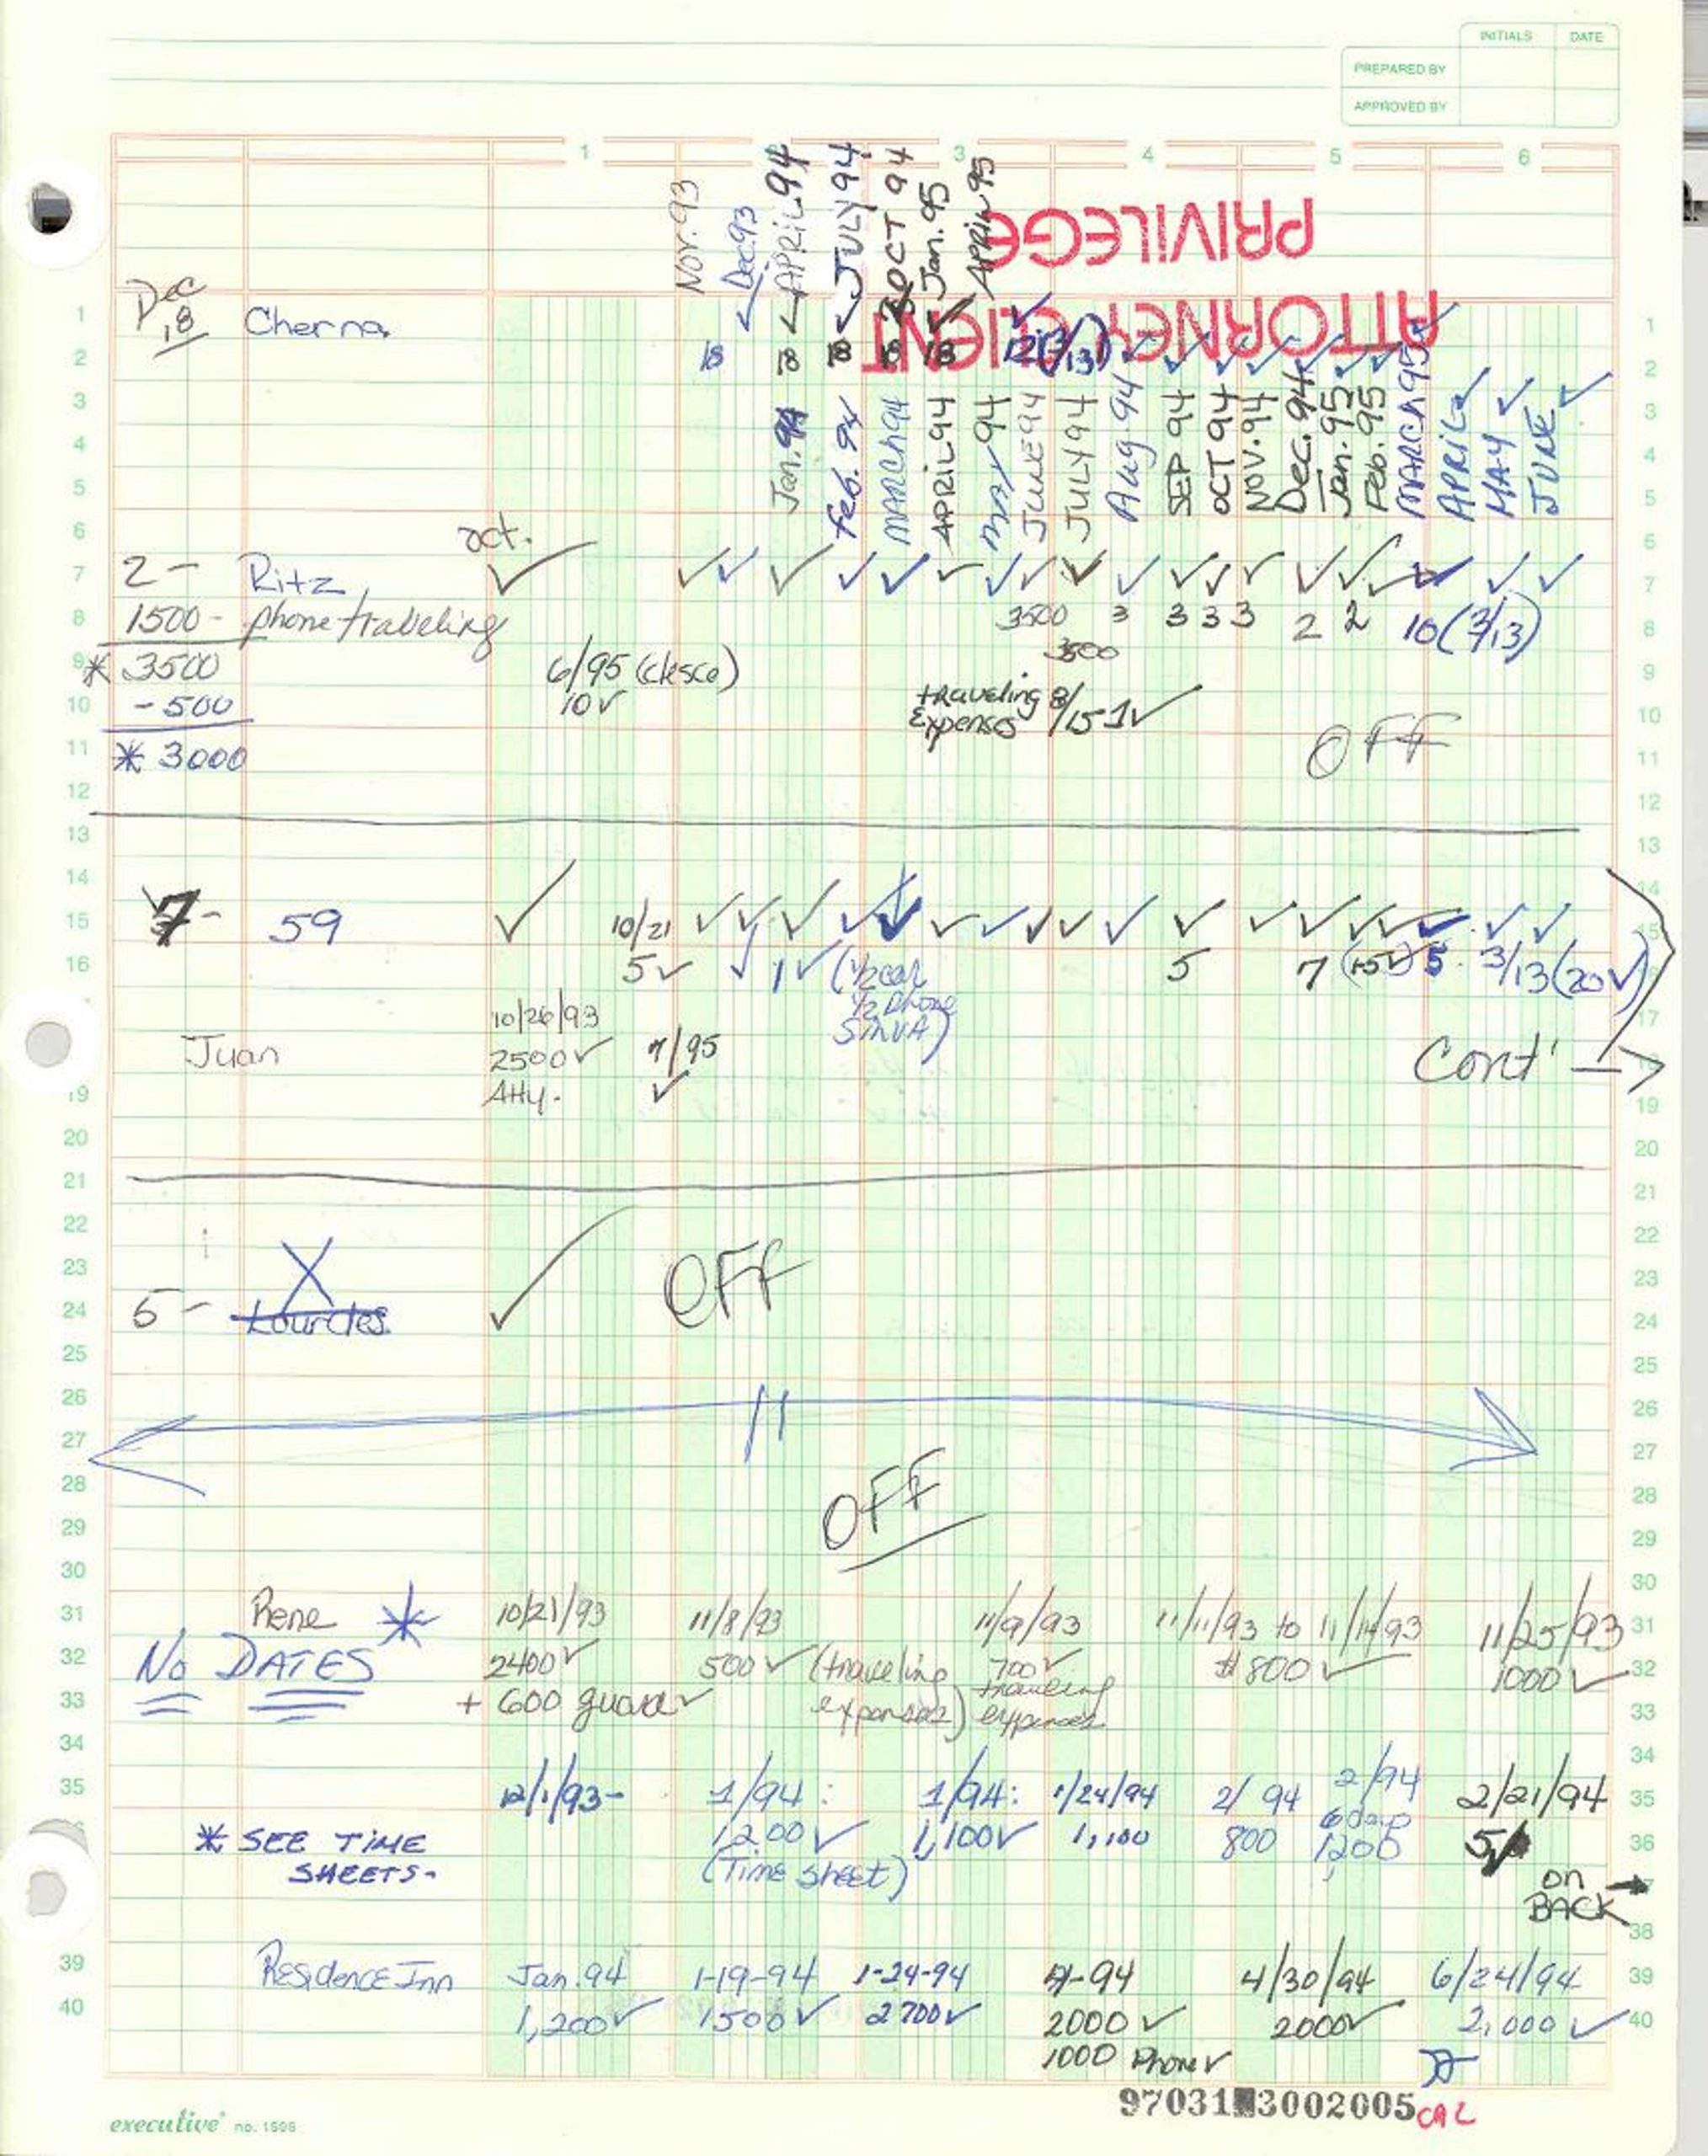 INITIALS DATE
PREPARED BY
APPROVED BY
1 3 4 5 6
Nov. 93
Dec. 93
APRIL 94
JULY 94
OCT 94
Jan. 95
APRIL 95
ATTORNEY CLIENT
PRIVILEGE
Dec
18 Cherna
18 18 18 18 18 12 (3/13)
Jan. 94
Feb. 94
MARCH 94
APRIL 94
MAY 94
JUNE 94
JULY 94
Aug 94
SEP 94
OCT 94
NOV. 94
Dec. 94
Jan. 95
Feb. 95
MARCH 95
APRIL
MAY
JUNE
oct.
2 - Ritz ✓ ✓ ✓ ✓ ✓ ✓ ✓ ✓ ✓ ✓ ✓ ✓ ✓ ✓ ✓ ✓ ✓ ✓ ✓
1500 - phone/traveling 3500 3 3 3 3 2 2 10 (3/13)
3500
* 3500 6/95 (clesco)
- 500 10 ✓ traveling 8/15 1 ✓
Expenses
* 3000 OFF
7 - 59 ✓ 10/21 ✓ ✓ ✓ ✓ ✓ ✓ ✓ ✓ ✓ ✓ ✓ ✓ ✓ ✓ ✓ ✓ ✓ ✓
5 ✓ ✓ 1 ✓ (1/2 car 5 7 (15 ✓) 5 3/13 (20 ✓)
1/2 phone
SinVA)
10/26/93
Juan 2500 ✓ 7/95 Cont' →
Atty. ✓
5 - Lourdes ✓ OFF
OFF
Rene * 10/21/93 11/8/93 11/9/93 11/11/93 to 11/14/93 11/25/93
NO DATES 2400 ✓ 500 ✓ (traveling 700 ✓ $800 ✓ 1000 ✓
+ 600 guard ✓ expenses) traveling
expenses
12/1/93- 1/94: 1/94: 1/24/94 2/94 2/94 2/21/94
6 days
* SEE TIME 1,200 ✓ 1,100 ✓ 1,100 800 1200 5 ✓
SHEETS- (Time sheet)
on →
BACK
Residence Inn Jan. 94 1-19-94 1-24-94 -94 4/30/94 6/24/94
1,200 ✓ 1500 ✓ 2700 ✓ 2000 ✓ 2000 ✓ 2,000 ✓
1000 Phone ✓
97031 3002005 CAL
executive no. 1596